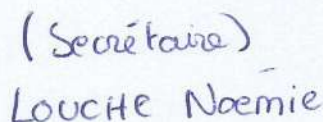 (Secrétaire)
LOUCHE Noemie